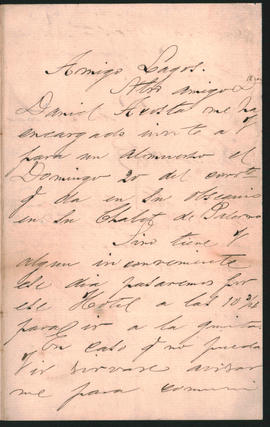 Amigo Lagos.
Ntro amigo Dn
Daniel Acosta me ha
encargado invite a V
para un almuerzo el
Domingo 20 del corrte
q da en su obsequio
en su Chalet de Palermo
Sino tiene V
algun inconveniente
ese dia pasaremos por
ese Hotel a las 10 3/4
para ir a la quinta
En caso q no pueda
V ir sirvase avisar
me para comuni